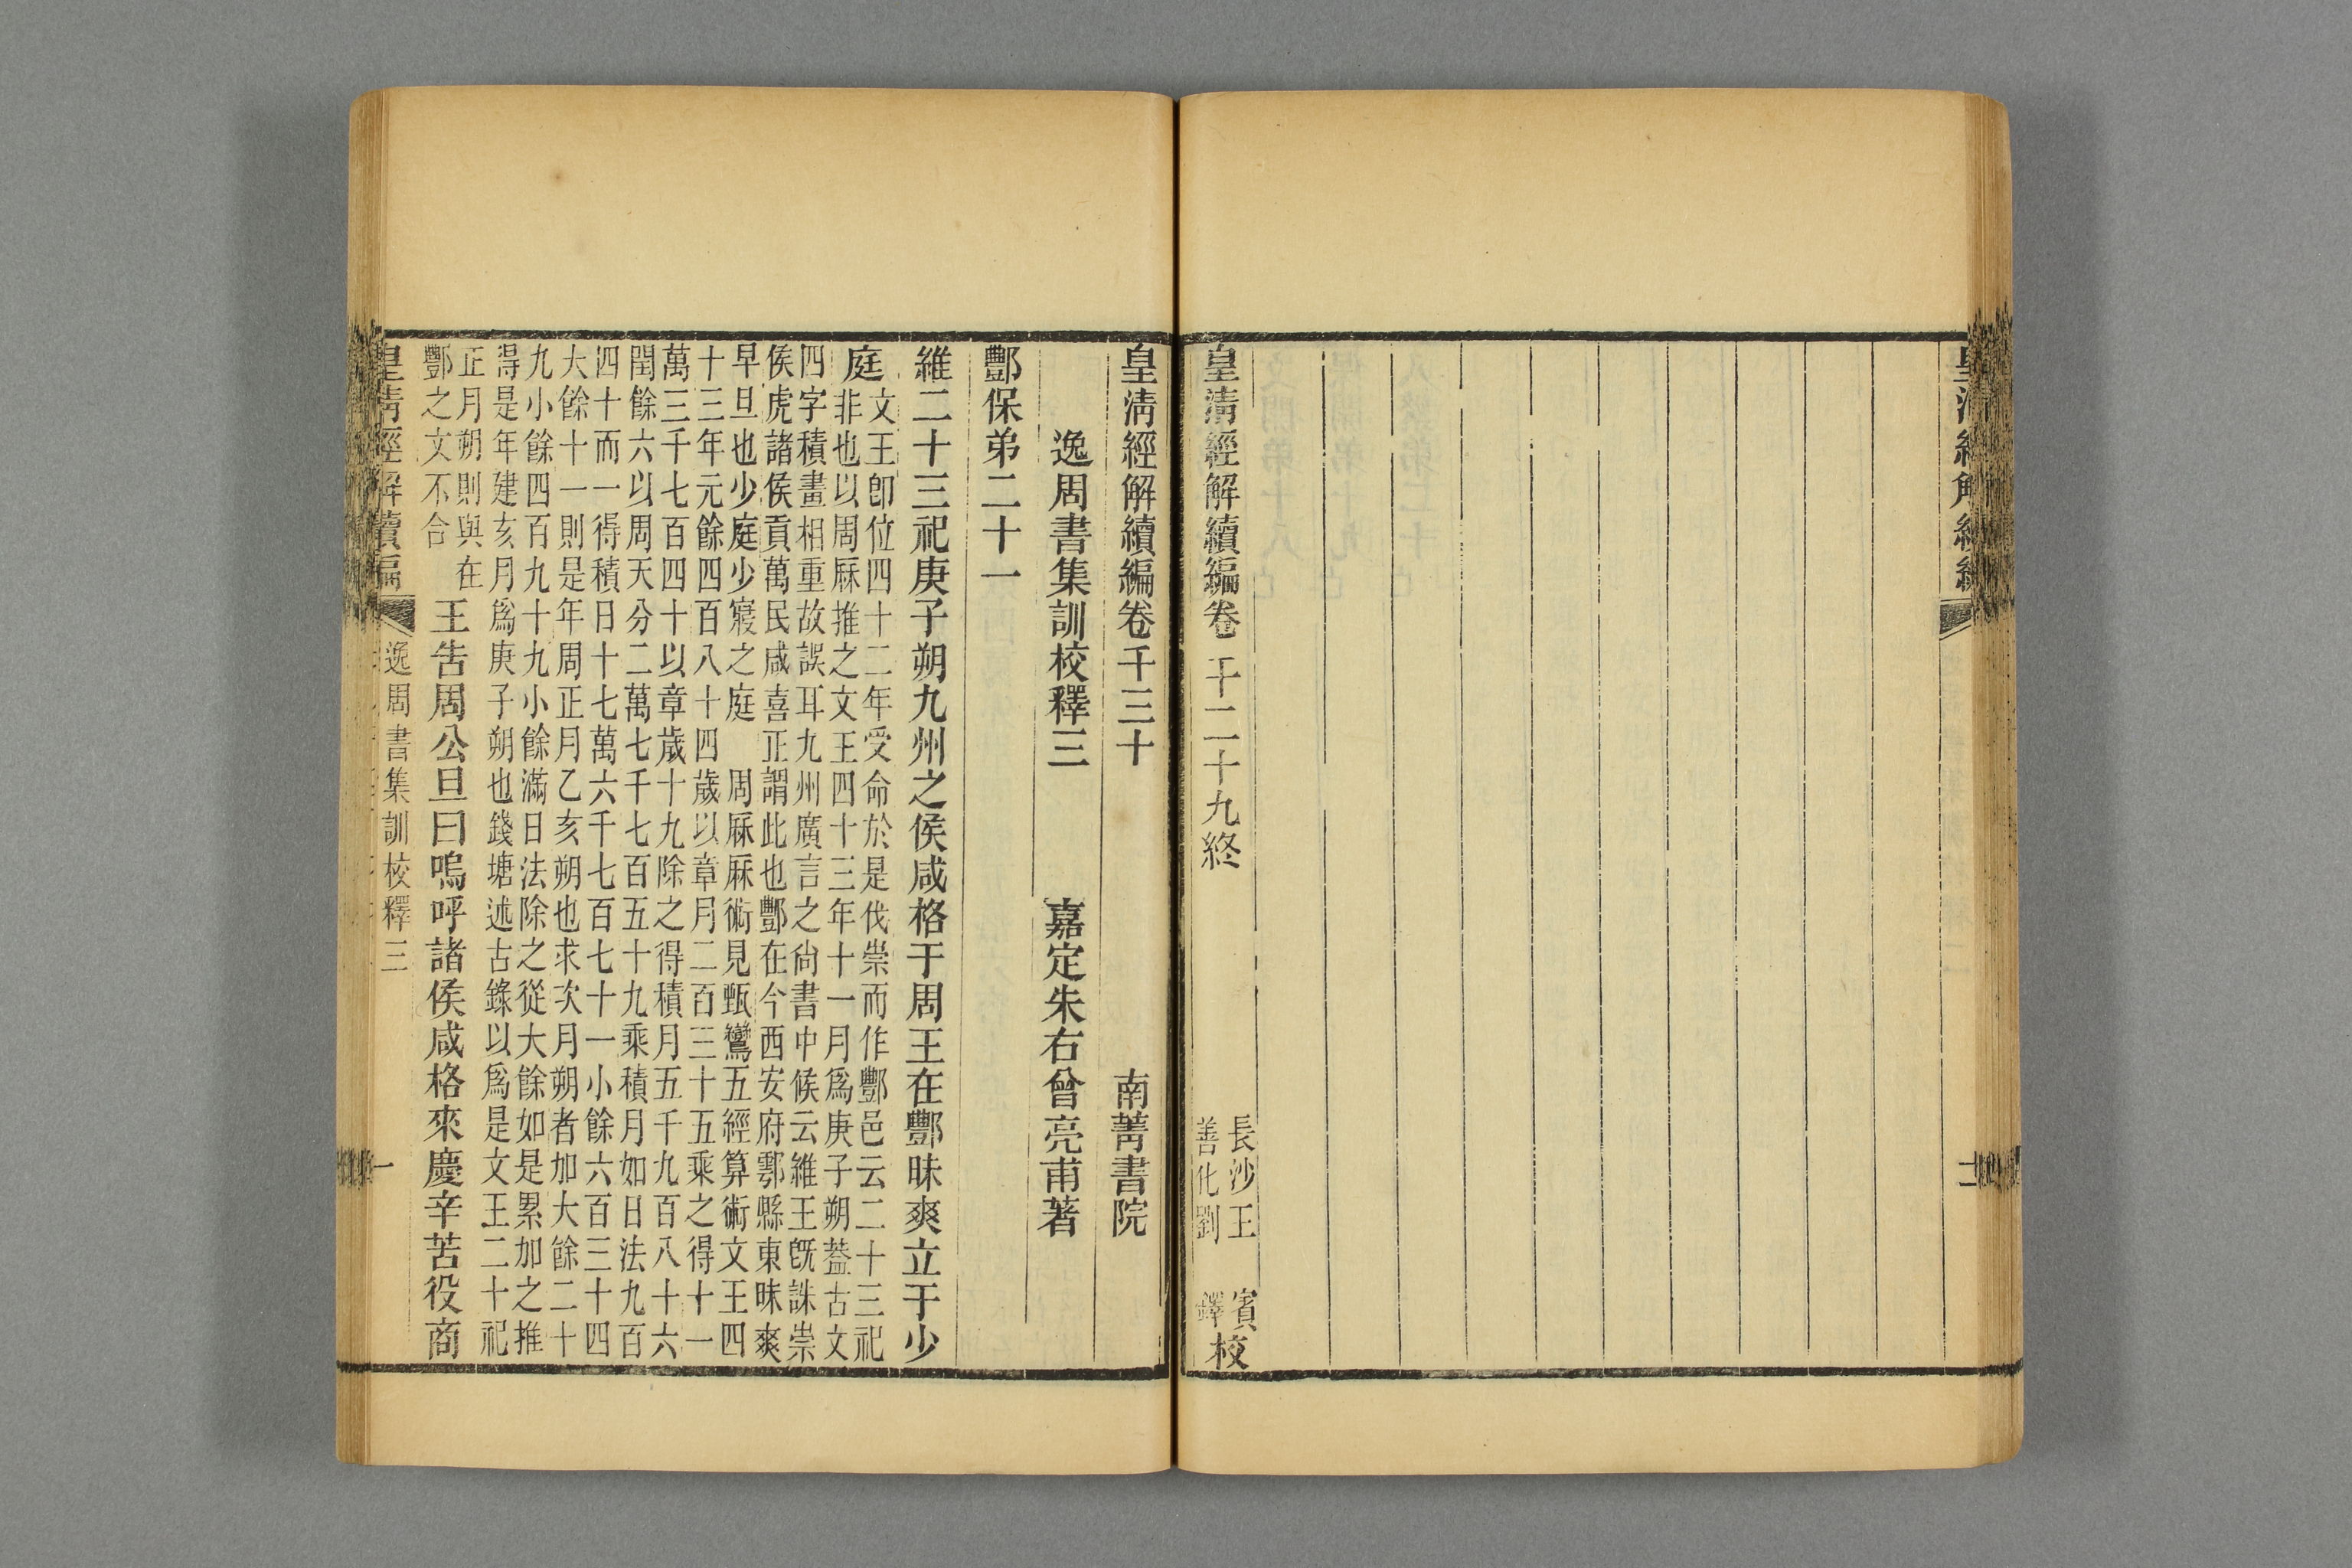 皇清經解續編卷千二十九終
長沙王 賓
善化劉 鐸
校
皇清經解續編卷千三十 南菁書院
逸周書集訓校釋三 嘉定朱右曾亮甫著
酆保弟二十一
維二十三祀庚子朔九州之侯咸格于周王在酆昧爽立于少
庭
文王卽位四十二年受命於是伐崇而作酆邑云二十三祀
非也以周厤推之文王四十三年十一月爲庚子朔葢古文
四字積畫相重故誤耳九州廣言之尙書中候云維王旣誅崇
侯虎諸侯貢萬民咸喜正謂此也酆在今西安府鄠縣東昧爽
早旦也少庭少寢之庭 周厤厤術見甄鸞五經算術文王四
十三年元餘四百八十四歲以章月二百三十五乘之得十一
萬三千七百四十以章歲十九除之得積月五千九百八十六
閏餘六以周天分二萬七千七百五十九乘積月如日法九百
四十而一得積日十七萬六千七百七十一小餘六百三十四
大餘十一則是年周正月乙亥朔也求次月朔者加大餘二十
九小餘四百九十九小餘滿日法除之從大餘如是累加之推
得是年建亥月爲庚子朔也錢塘述古錄以爲是文王二十祀
正月朔則與在
酆之文不合
王告周公旦曰嗚呼諸侯咸格來慶辛苦役商
皇清經解續編 逸周書集訓校釋三 一